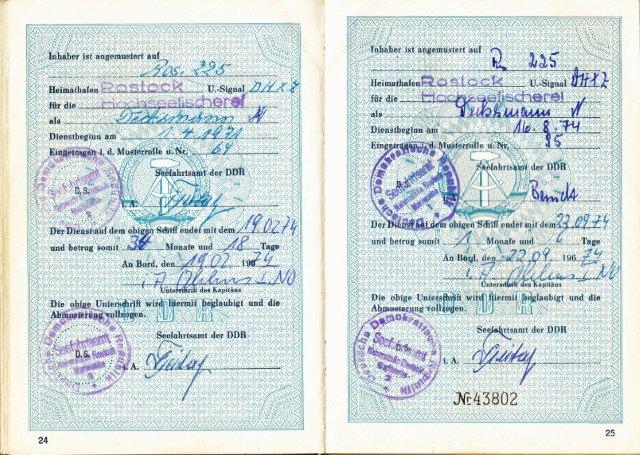 Inhaber ist angemustert auf
Ros. 225
Heimathafen Rostock U.-Signal DHXZ
für die Hochseefischerei
als Decksmann N
Dienstbeginn am 1.4.1971
Eingetragen i. d. Musterrolle u. Nr. 69
Seefahrtsamt der DDR
D.S.
i. A. Freitag
Der Dienst auf dem obigen Schiff endet mit dem 19.02.74
und betrug somit 34 Monate und 18 Tage
An Bord, den 19.02. 1974
i. A.
Unterschrift des Kapitäns
Die obige Unterschrift wird hiermit beglaubigt und die
Abmusterung vollzogen.
DDR
Seefahrtsamt der DDR
Deutsche Demokratische Republik
Seefahrtsamt
D.S.
i. A. Freitag
24
Inhaber ist angemustert auf
225
Heimathafen Rostock U.-Signal DHXZ
für die Hochseefischerei
als Decksmann N
Dienstbeginn am 16.8.74
Eingetragen i. d. Musterrolle u. Nr. 95
Seefahrtsamt der DDR
Deutsche Demokratische Republik
Seefahrtsamt
D.S.
i. A.
Der Dienst auf dem obigen Schiff endet mit dem 22.09.74
und betrug somit 1 Monate und 6 Tage
An Bord, den 22.09. 1974
i. A.
Unterschrift des Kapitäns
Die obige Unterschrift wird hiermit beglaubigt und die
Abmusterung vollzogen.
DDR
Seefahrtsamt der DDR
Deutsche Demokratische Republik
Seefahrtsamt
D.S.
i. A. Freitag
№ 43802
25